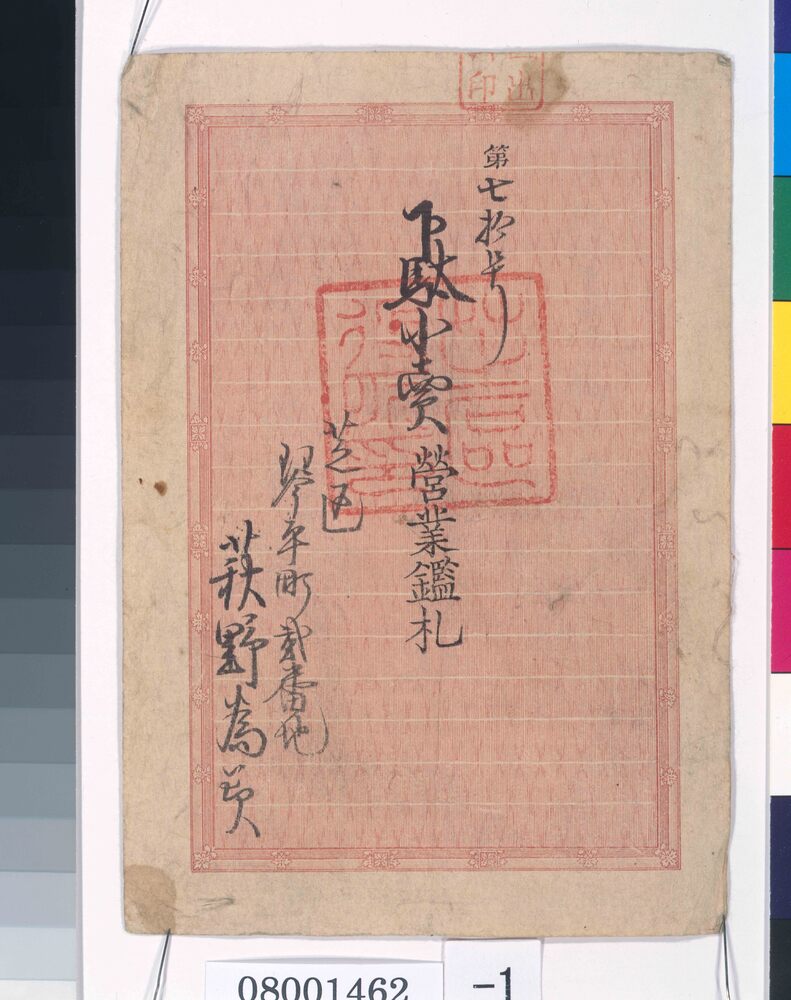 第七拾号
下駄小賣営業鑑札
芝区
琴平町貳番地
萩野
08001462
-1